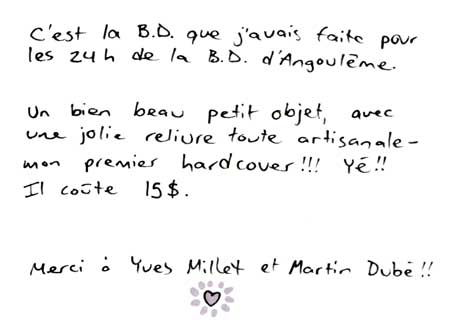 C'est la B.D. que j'avais faite pour
les 24h de la B.D. d'Angoulême.
Un bien beau petit objet, avec
une jolie reliure toute artisanale-
mon premier hardcover!!! Yé!!
Il coûte 15$.
Merci à Yves Millet et Martin Dubé!!